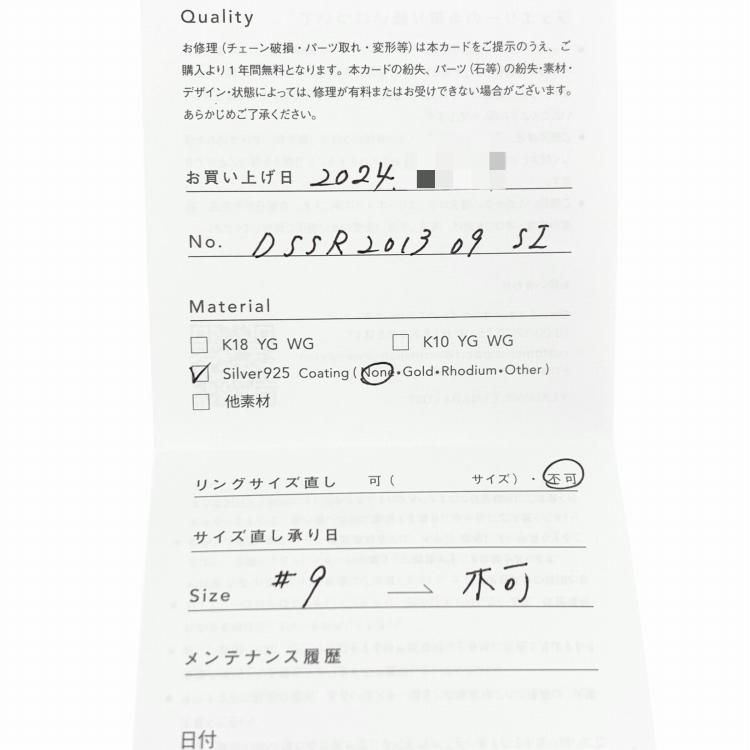 Quality
お修理（チェーン破損・パーツ取れ・変形等）は本カードをご提示のうえ、ご
購入より1年間無料となります。本カードの紛失、パーツ（石等）の紛失・素材・
デザイン・状態によっては、修理が有料またはお受けできない場合がございます。
あらかじめご了承ください。
お買い上げ日 2024.
No. DSSR2013 09 SI
Material
K18 YG WG K10 YG WG
Silver925 Coating (None・Gold・Rhodium・Other)
他素材
リングサイズ直し 可（ サイズ）・不可
サイズ直し承り日
Size #9 → 不可
メンテナンス履歴
日付